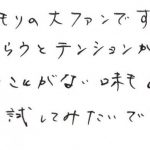 もりの大ファンです
らうとテンションが
ことがない味も
試してみたいで